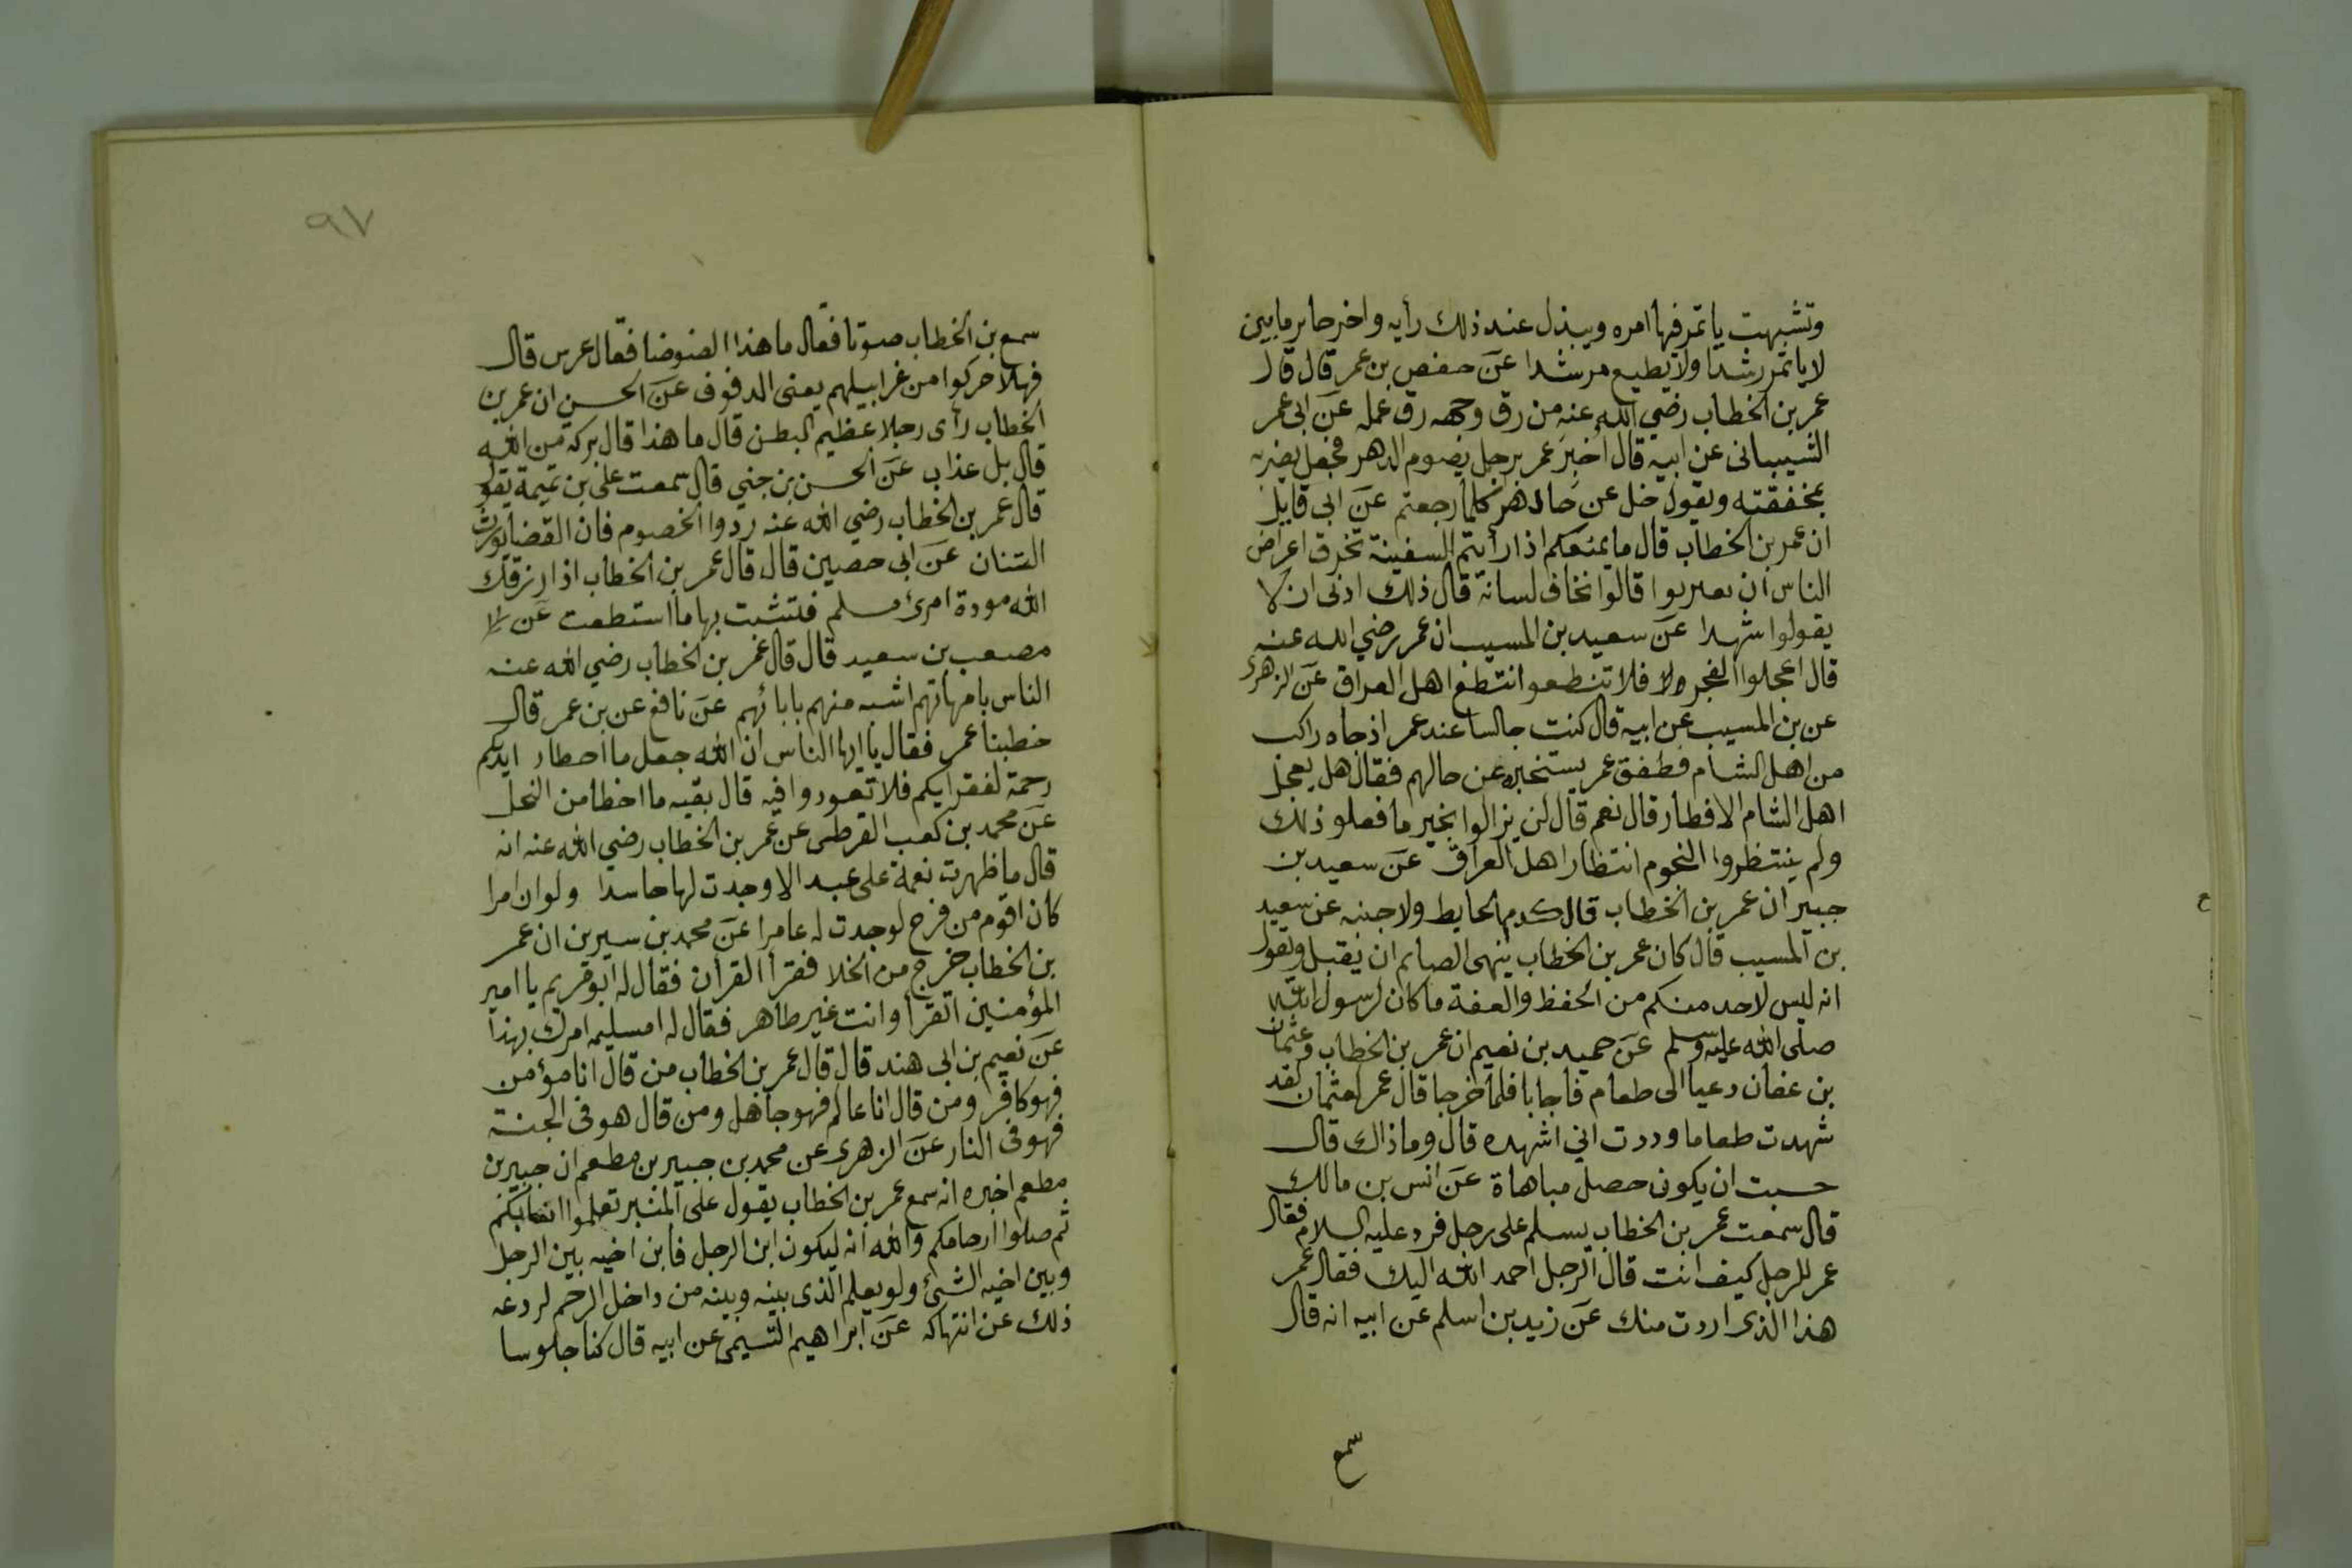 وتشبهت ياتمر فيها امره ويبذل عند ذلك رأيه واخر حاير ماببين
لا ياتمر رشدا ولا يطيع مرشدا عن حفص بن عمر قال قال
عمر بن الخطاب رضي الله عنه من رق وجهه رق عمله عن ابى عمر
الشيبانى عن ابيه قال أُخبِرَ عمر برجل يصوم الدهر فجعل يضربه
بمخفقته ويقول خل عن حالدهر كلما رجعتم عن ابى قايل
ان عمر بن الخطاب قال ما يمنعكم اذا رأيتم السفينة تخرق اعراض
الناس ان تعربوا قالوا نخاف لسانه قال ذلك ادنى ان لا
يقولوا شهدا عن سعيد بن المسيب ان عمر رضي الله عنه
قال اعجلوا الفجر ولا فلا تنطعو انتطع اهل العراق عن الزهرى
عن بن المسيب عن ابيه قال كنت جالسا عند عمر اذ جاه راكب
من اهل الشام فطفق عمر يستخبره عن حالهم فقال هل يعجل
اهل الشام الافطار قال نعم قال لن يزالوا بخير ما فعلو ذلك
ولم ينتظروا النجوم انتظار اهل العراق عن سعيد بن
جبير ان عمر بن الخطاب قال كدبها الحايط ولا جبنه عن سعيد
بن المسيب قال كان عمر بن الخطاب ينهى الصايم ان يقبل ويقول
انه ليس لاحد منكم من الحفظ والعفة ما كان لرسول الله
صلى الله عليه وسلم عن حميد بن نعيم ان عمر بن الخطاب وعثمان
بن عفان دعيا الى طعام فاجابا فلما خرجا قال عمر لعثمان لقد
شهدت طعاما وددت اني اشهده قال وما ذاك قال
حسبت ان يكون حصل مباهاة عن انس بن مالك
قال سمعت عمر بن الخطاب يسلم على رجل فرد عليه السلام فقال
عمر للرجل كيف انت قال الرجل احمد الله اليك فقال عمر
هذا الذى اردت منك عن زيد بن اسلم عن ابيه انه قال
سمع
٩٧
سمع بن الخطاب صوتا فقال ما هذا الضوضا فقال عرس قال
فهلا حركوا من غرابيلهم يعنى الدفوف عن الحسن ان عمر بن
الخطاب رأى رجلا عظيم البطن قال ما هذا قال بركة من الله
قال بل عذاب عن الحسن بن جني قال سمعت على بن تميمة يقو
قال عمر بن الخطاب رضي الله عنه ردوا الخصوم فان القضا يورث
الشنان عن ابى حصين قال قال عمر بن الخطاب اذا رزقك
الله مودة امرئ مسلم فتشبت بها ما استطعت عن
مصعب بن سعيد قال قال عمر بن الخطاب رضي الله عنه
الناس بامهاتهم اشبه منهم بابائهم عن نافع عن بن عمر قال
خطبنا عمر فقال يا ايها الناس ان الله جعل ما احطار ايديكم
رحمة لفقرايكم فلا تعودوا فيه قال بقيه ما اخطا من النخل
عن محمد بن كعب القرظى عن عمر بن الخطاب رضي الله عنه انه
قال ما ظهرت نعمة على عبد الا وجدت لها حاسدا ولو ان امرا
كان اقوم من قزح لوجدت له عامرا عن محمد بن سيرين ان عمر
بن الخطاب خرج من الخلا فقرأ القرأن فقال له ابو قريم يا امير
المؤمنين اتقرأ وانت غير طاهر فقال له امسليمه امرك بهذا
عن نعيم بن ابى هند قال قال عمر بن الخطاب من قال انا مؤمن
فهو كافر ومن قال انا عالم فهو جاهل ومن قال هو فى الجنة
فهو فى النار عن الزهرى عن محمد بن جبير بن مطعم ان جبير بن
مطعم اخبره انه سمع عمر بن الخطاب يقول على المنبر تعلموا انسابكم
ثم صلوا ارحامكم والله انه ليكون ابن الرجل فابن اخيه بين الرجل
وبين اخيه الشئ ولو يعلم الذى بينه وبينه من داخل الرحم لردعه
ذلك عن انتهاكه عن ابراهيم التسيمى عن ابيه قال كنا جلوسا